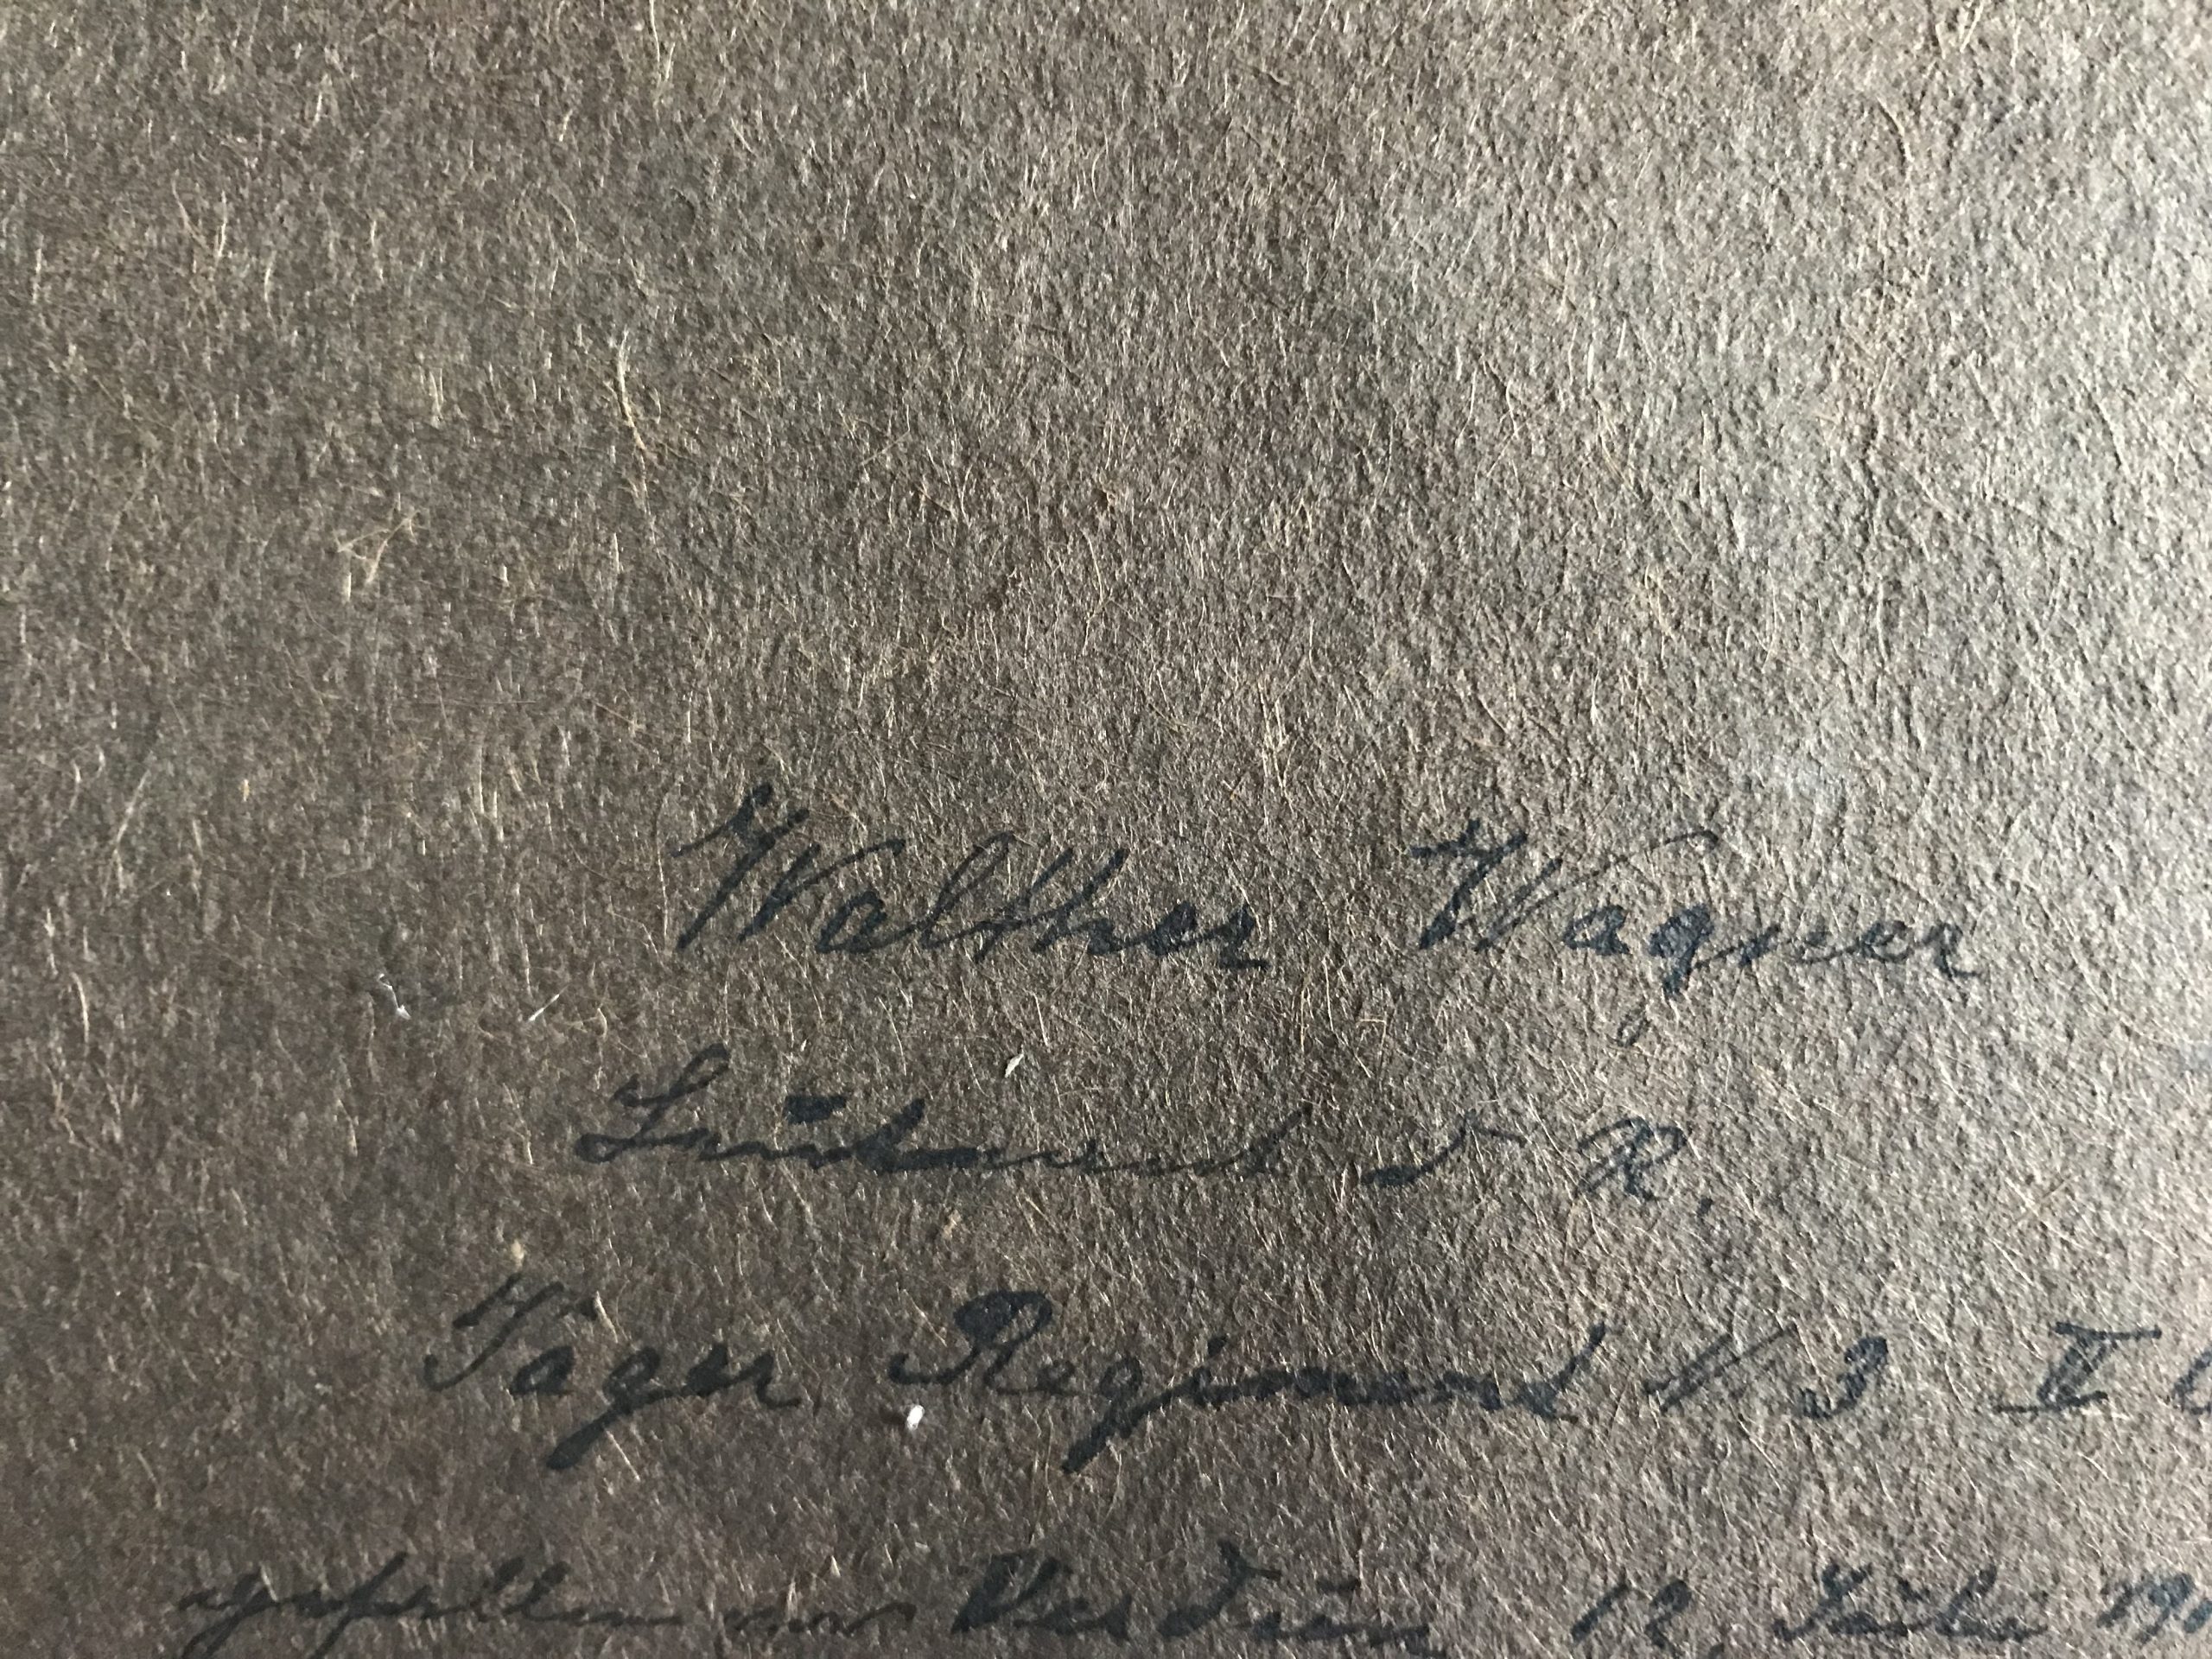 Walther Wagner
Leutnant d R.
Jäger Regiment N 3 II
gefallen vor Verdun 12. Juli 191